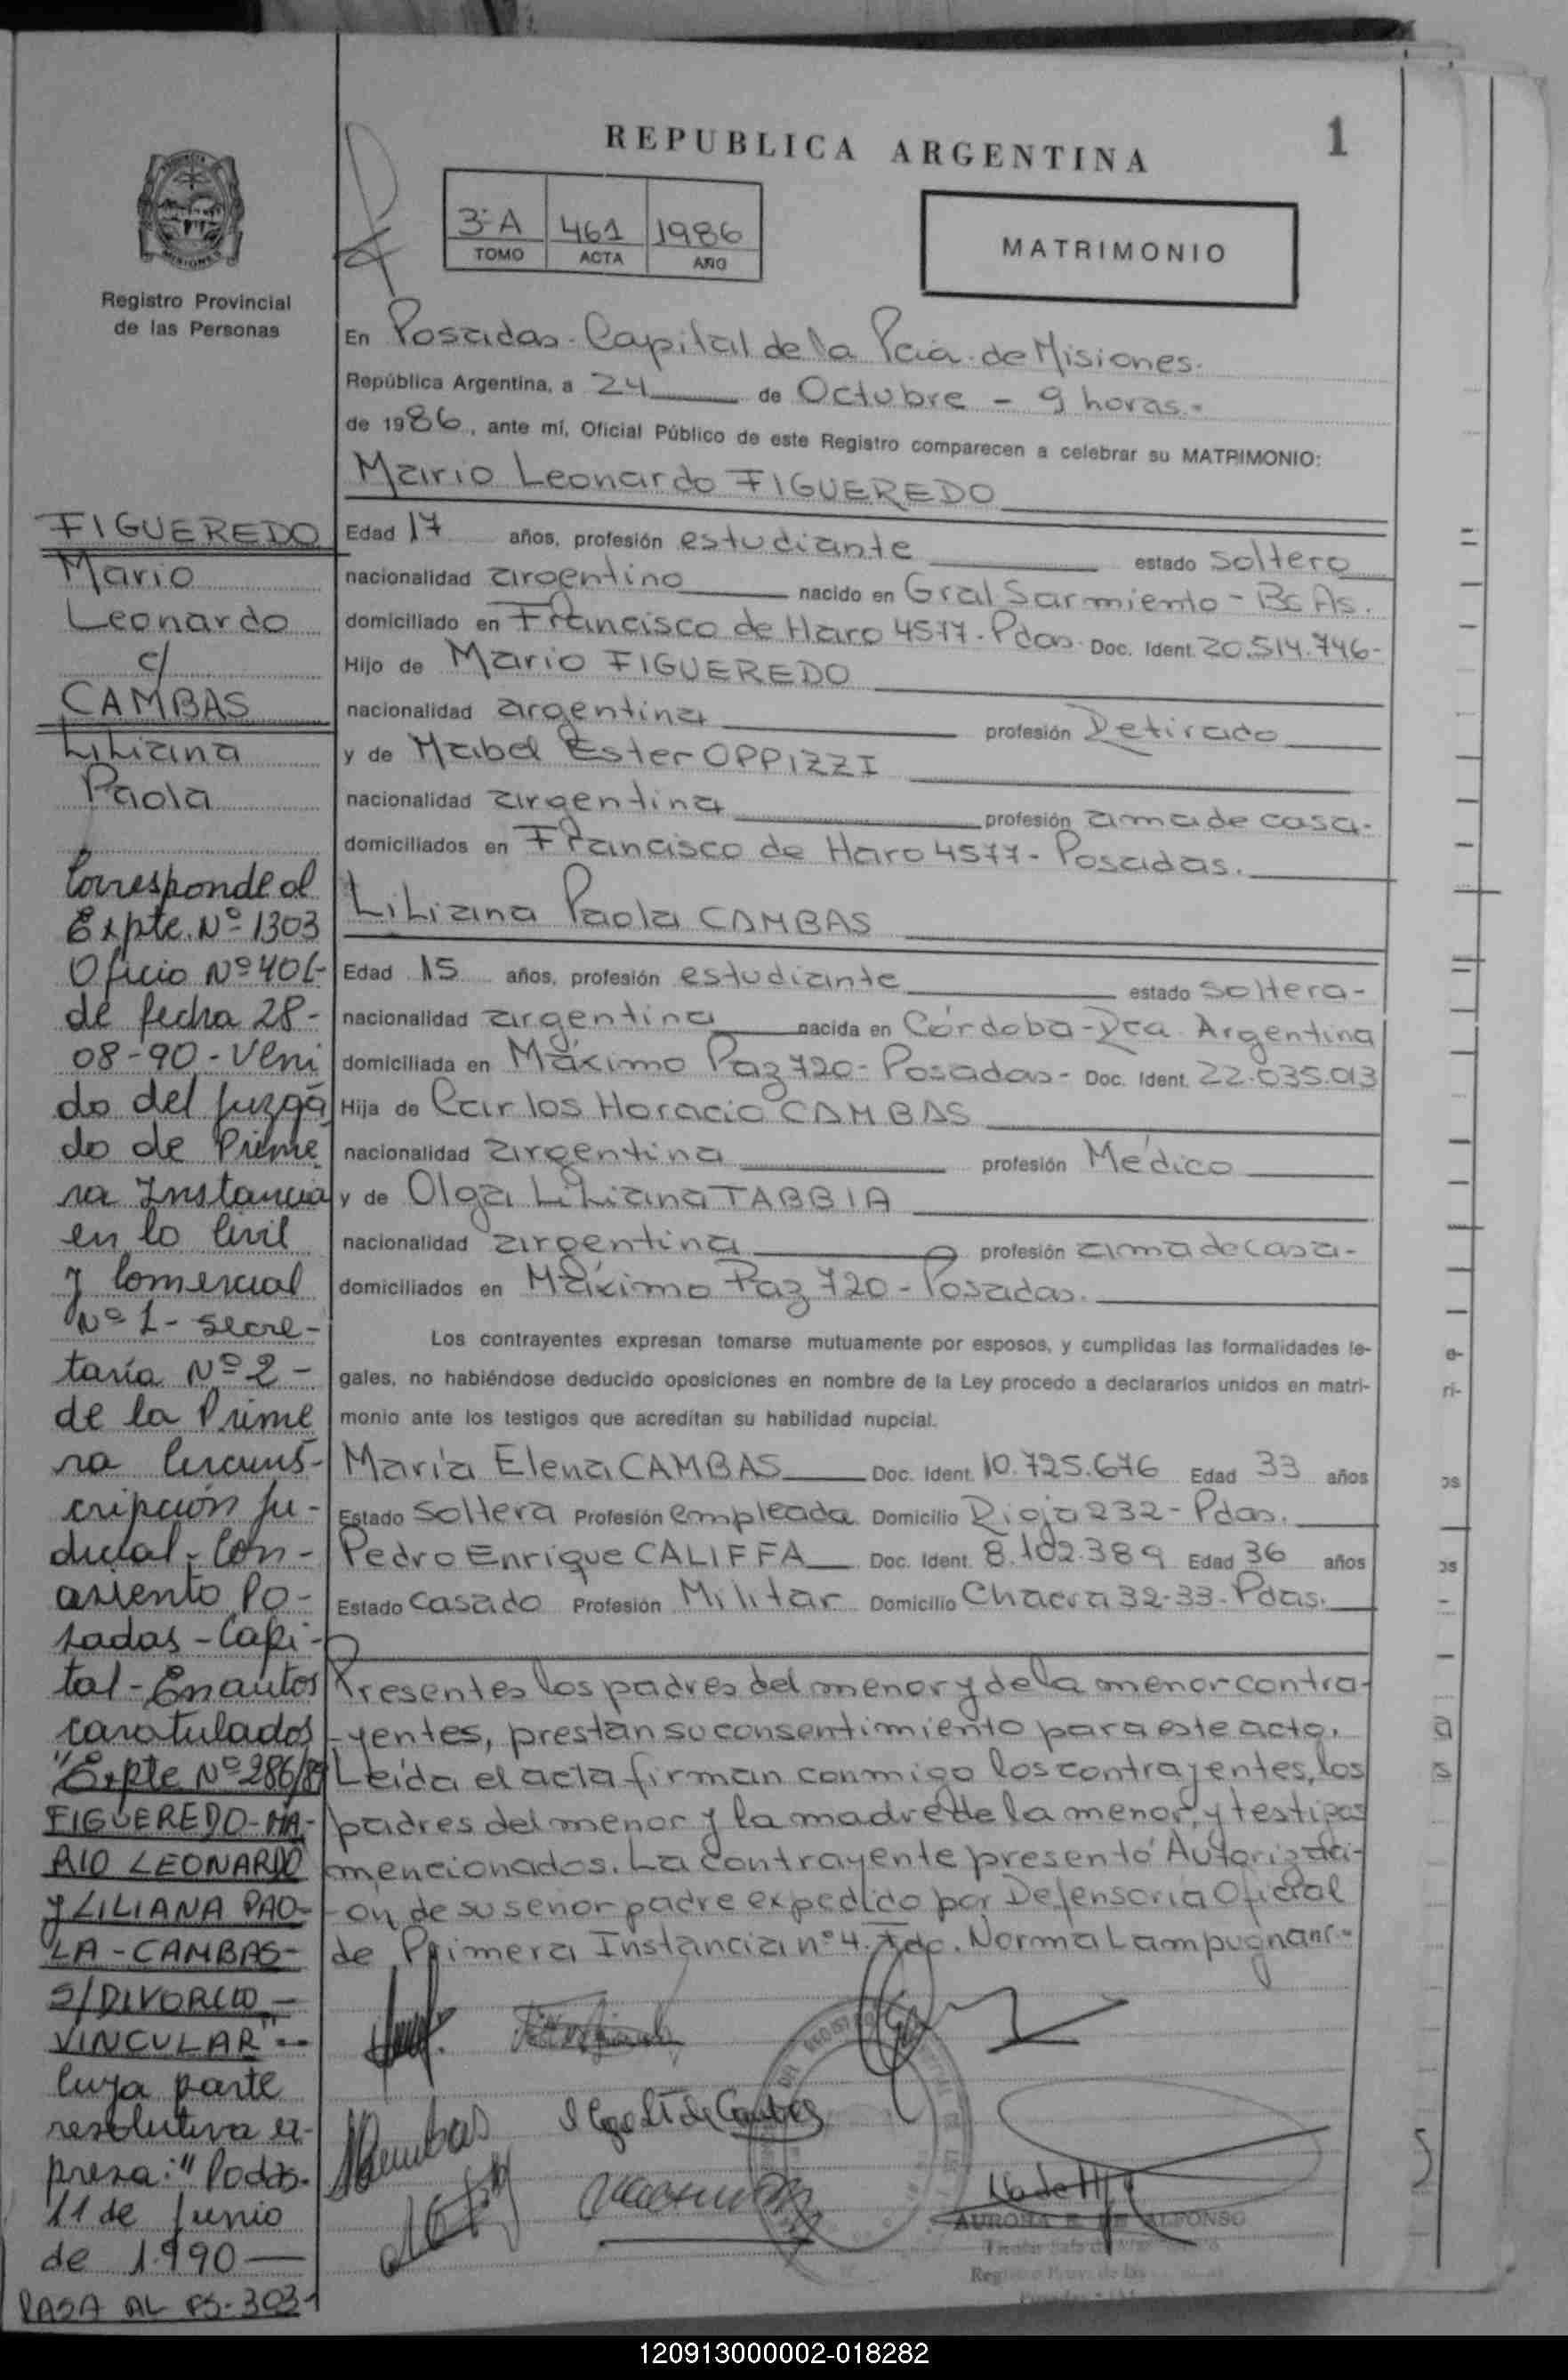 REPUBLICA ARGENTINA
1
3ª A 461 1986
TOMO ACTA AÑO
MATRIMONIO
Registro Provincial
de las Personas
En Posadas - Capital de la Pcia. de Misiones.
República Argentina, a 24 de Octubre - 9 horas -
de 1986, ante mí, Oficial Público de este Registro comparecen a celebrar su MATRIMONIO:
Mario Leonardo FIGUEREDO
Edad 17 años, profesión estudiante estado soltero
nacionalidad argentino nacido en Gral Sarmiento - Bs As.
domiciliado en Francisco de Haro 4577 - Pdas. Doc. Ident. 20.514.746-
Hijo de Mario FIGUEREDO
nacionalidad argentina profesión Retirado
y de Mabel Ester OPPIZZI
nacionalidad argentina profesión ama de casa -
domiciliados en Francisco de Haro 4577 - Posadas.
Liliana Paola CAMBAS
Edad 15 años, profesión estudiante estado soltera -
nacionalidad argentina nacida en Córdoba - Rca. Argentina
domiciliada en Máximo Paz 720 - Posadas - Doc. Ident. 22.035.013
Hija de Carlos Horacio CAMBAS
nacionalidad argentina profesión Médico
y de Olga Liliana TABBIA
nacionalidad argentina profesión ama de casa -
domiciliados en Máximo Paz 720 - Posadas.
Los contrayentes expresan tomarse mutuamente por esposos, y cumplidas las formalidades le-
gales, no habiéndose deducido oposiciones en nombre de la Ley procedo a declararlos unidos en matri-
monio ante los testigos que acreditan su habilidad nupcial.
María Elena CAMBAS Doc. Ident. 10.725.676 Edad 33 años
Estado soltera Profesión empleada Domicilio Rioja 232 - Pdas.
Pedro Enrique CALIFFA Doc. Ident. 8.102.389 Edad 36 años
Estado casado Profesión Militar Domicilio Chacra 32-33 - Pdas.
Presentes los padres del menor y de la menor contra-
-yentes, prestan su consentimiento para este acto.
Leída el acta firman conmigo los contrayentes, los
padres del menor y la madre de la menor, y testigos
mencionados. La contrayente presentó Autorizaci-
-ón de su señor padre expedido por Defensoría Oficial
de Primera Instancia nº 4. Fdo. Norma Lampugnani -
AURORA E. DE ALFONSO
FIGUEREDO
Mario
Leonardo
c/
CAMBAS
Liliana
Paola
Corresponde al
Expte. Nº 1303
Oficio Nº 401-
de fecha 28-
08-90 - Veni
do del Juzga
do de Prime
ra Instancia
en lo Civil
y Comercial
Nº 1 - Secre-
taría Nº 2 -
de la Prime
ra Circuns-
cripción Ju-
dicial - Con -
asiento Po-
sadas - Capi-
tal - En autos
caratulados
"Expte Nº 286/89
FIGUEREDO - MA-
RIO LEONARDO
y LILIANA PAO-
LA - CAMBAS -
S/ DIVORCIO -
VINCULAR" --
Cuya parte
resolutiva ex-
presa: " Podas.
11 de Junio
de 1.990 —
PASA AL FS. 303-
120913000002-018282